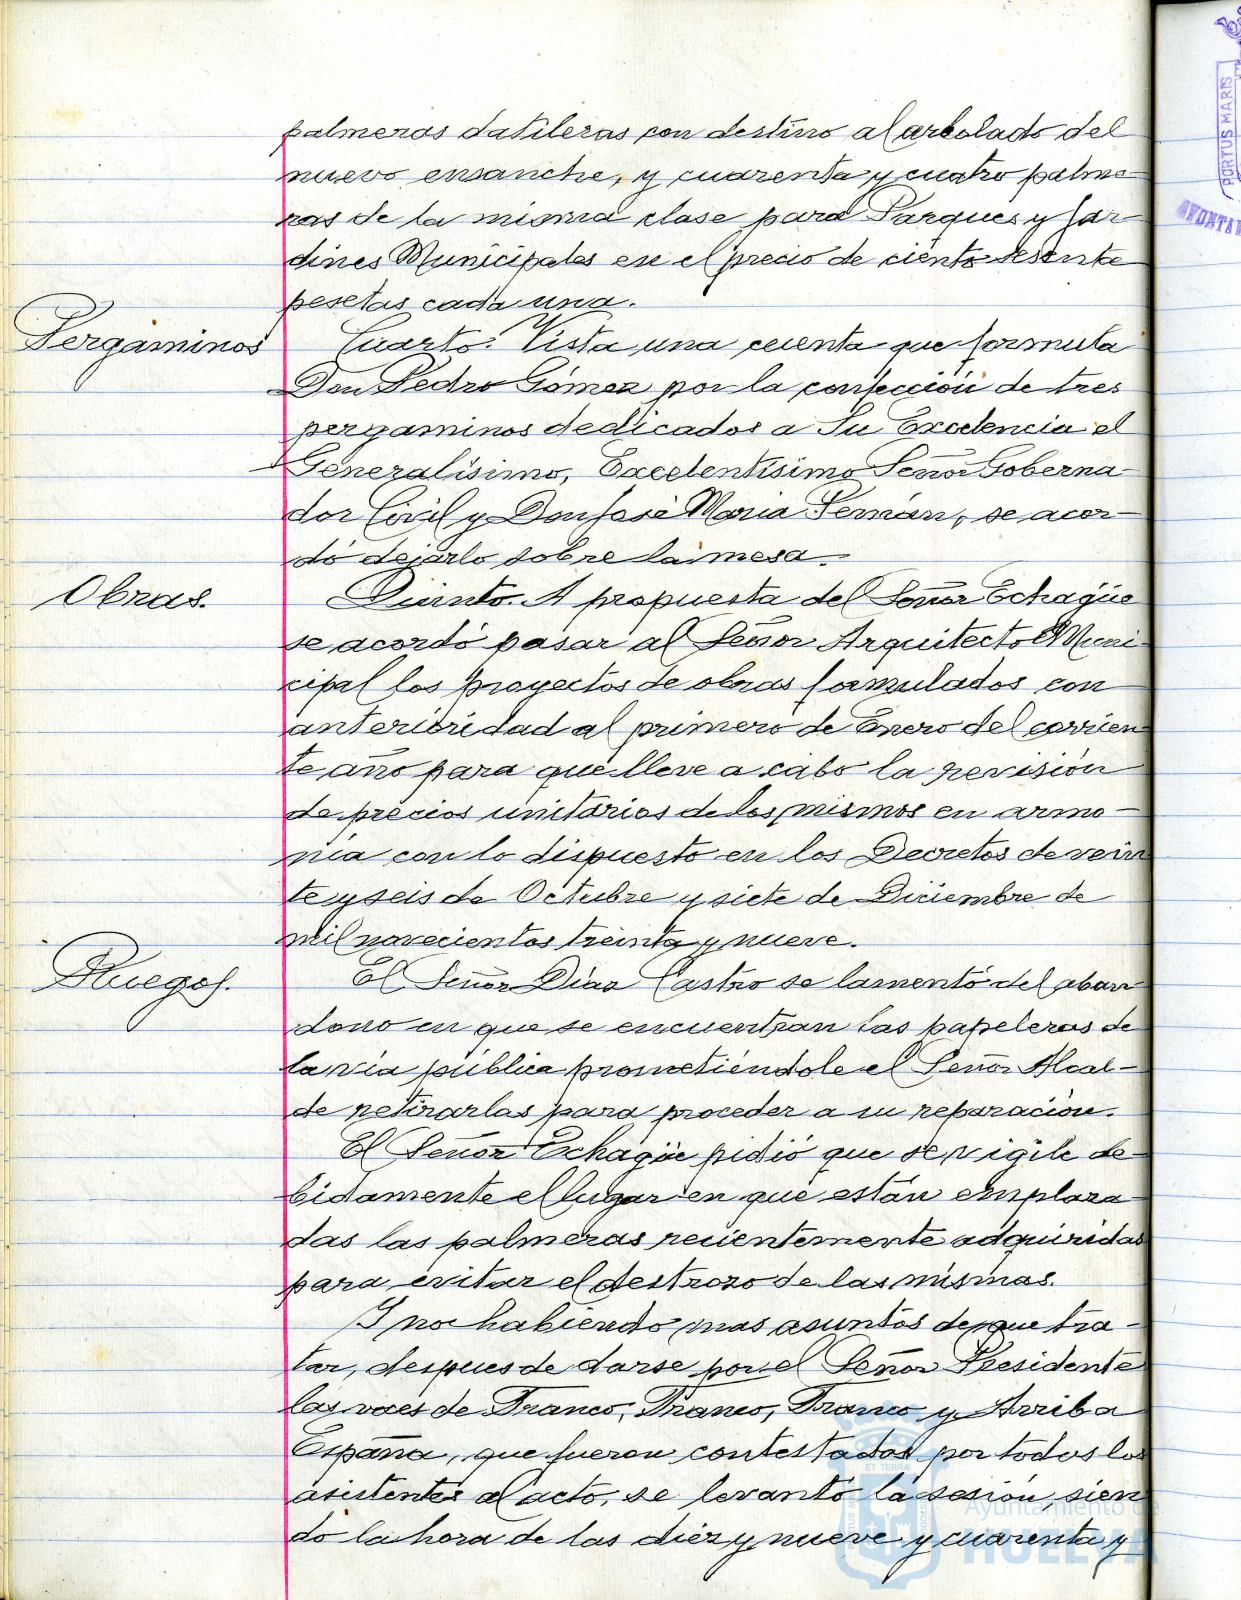 palmeras datileras con destino al arbolado del
nuevo ensanche, y cuarenta y cuatro palme-
ras de la misma clase para Parques y Jar-
dines Municipales en el precio de ciento sesenta
pesetas cada una.
Pergaminos
Cuarto. Vista una cuenta que formula
Don Pedro Gómez por la confección de tres
pergaminos dedicados a Su Excelencia el
Generalísimo, Excelentísimo Señor Goberna-
dor Civil y Don José María Pemán, se acor-
dó dejarlo sobre la mesa.
Obras.
Quinto. A propuesta del Señor Echagüe
se acordó pasar al Señor Arquitecto Muni-
cipal los proyectos de obras formulados con
anterioridad al primero de Enero del corrien
te año para que lleve a cabo la revisión
de precios unitarios de los mismos en armo-
nía con lo dispuesto en los Decretos de vein
te y seis de Octubre y siete de Diciembre de
mil novecientos treinta y nueve.
Ruegos.
El Señor Díaz Castro se lamentó del aban
dono en que se encuentran las papeleras de
la vía pública prometiéndole el Señor Alcal-
de retirarlas para proceder a su reparación.
El Señor Echagüe pidió que se vigile de-
bidamente el lugar en que están emplaza-
das las palmeras recientemente adquiridas
para evitar el destrozo de las mismas.
Y no habiendo mas asuntos de que tra-
tar, despues de darse por el Señor Presidente
las voces de Franco, Franco, Franco y Arriba
España, que fueron contestadas por todos los
asistentes al acto, se levantó la sesión, sien
do la hora de las diez y nueve y cuarenta y
Ayuntamiento de
HUELVA
PORTUS MARIS
AYUNTAM